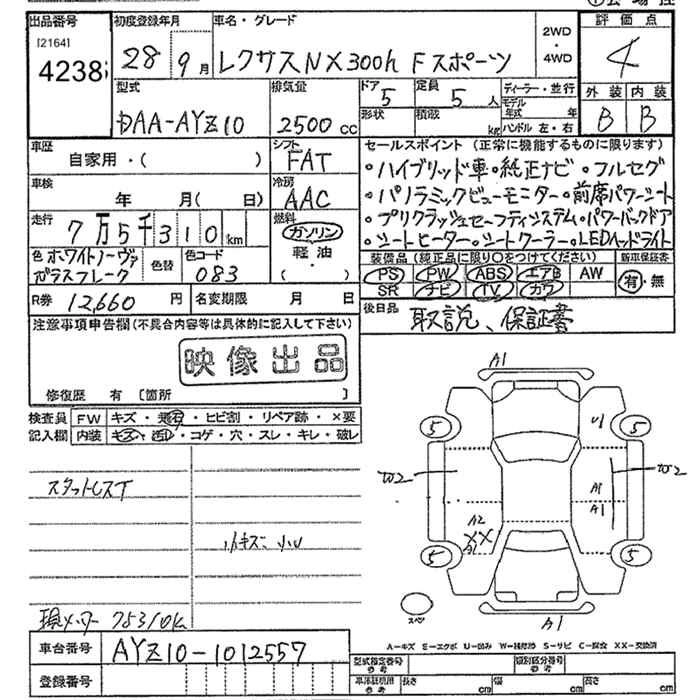 出品番号 初度登録年月 車名・グレード 評価点
[2164] 4238 28 9月 レクサスNX300h Fスポーツ 2WD・4WD 4
型式 排気量 ドア 定員 ディーラー・並行 外装 内装
DAA-AYZ10 2500cc 5 5人 モデル年式 年 B B
形状 積載 kg ハンドル 左・右
車歴 シフト セールスポイント(正常に機能するものに限ります)
自家用・( ) FAT ・ハイブリッド車・純正ナビ・フルセグ
車検 冷房 ・パノラミックビューモニター・前席パワーシート
年 月( 日) AAC ・プリクラッシュセーフティシステム・パワーバックドア
走行 燃料 ・シートヒーター・シートクーラー・LEDヘッドライト
7万5千310km ガソリン・軽油・( )
色 ホワイトノーヴァガラスフレーク 色替 色コード 083
装備品(純正品に限り○をつけてください) 新車保証書
PS PW ABS エアB AW 有・無
SR ナビ TV カワ
R券 12,660円 名変期限 月 日 後日品 取説、保証書
注意事項申告欄(不具合内容等は具体的に記入して下さい)
映像出品
修復歴 有 [箇所 ]
検査員記入欄 FW キズ・飛石・ヒビ割・リペア跡・×要
内装 キズ・汚レ・コゲ・穴・スレ・キレ・破レ
スタットレスT
小キズ 小U
現メーター 75310K
A1
U1
5 5
W2 W2
A1
A1
A2
XX
5 5
スペア
A1
A-キズ E-エクボ U-凹み W-補修跡 S-サビ C-腐食 XX-交換済
車台番号 AYZ10-1012557
登録番号
型式指定番号 参考 類別区分番号 参考
車庫証明用 参考 長さ cm 幅 cm 高さ cm